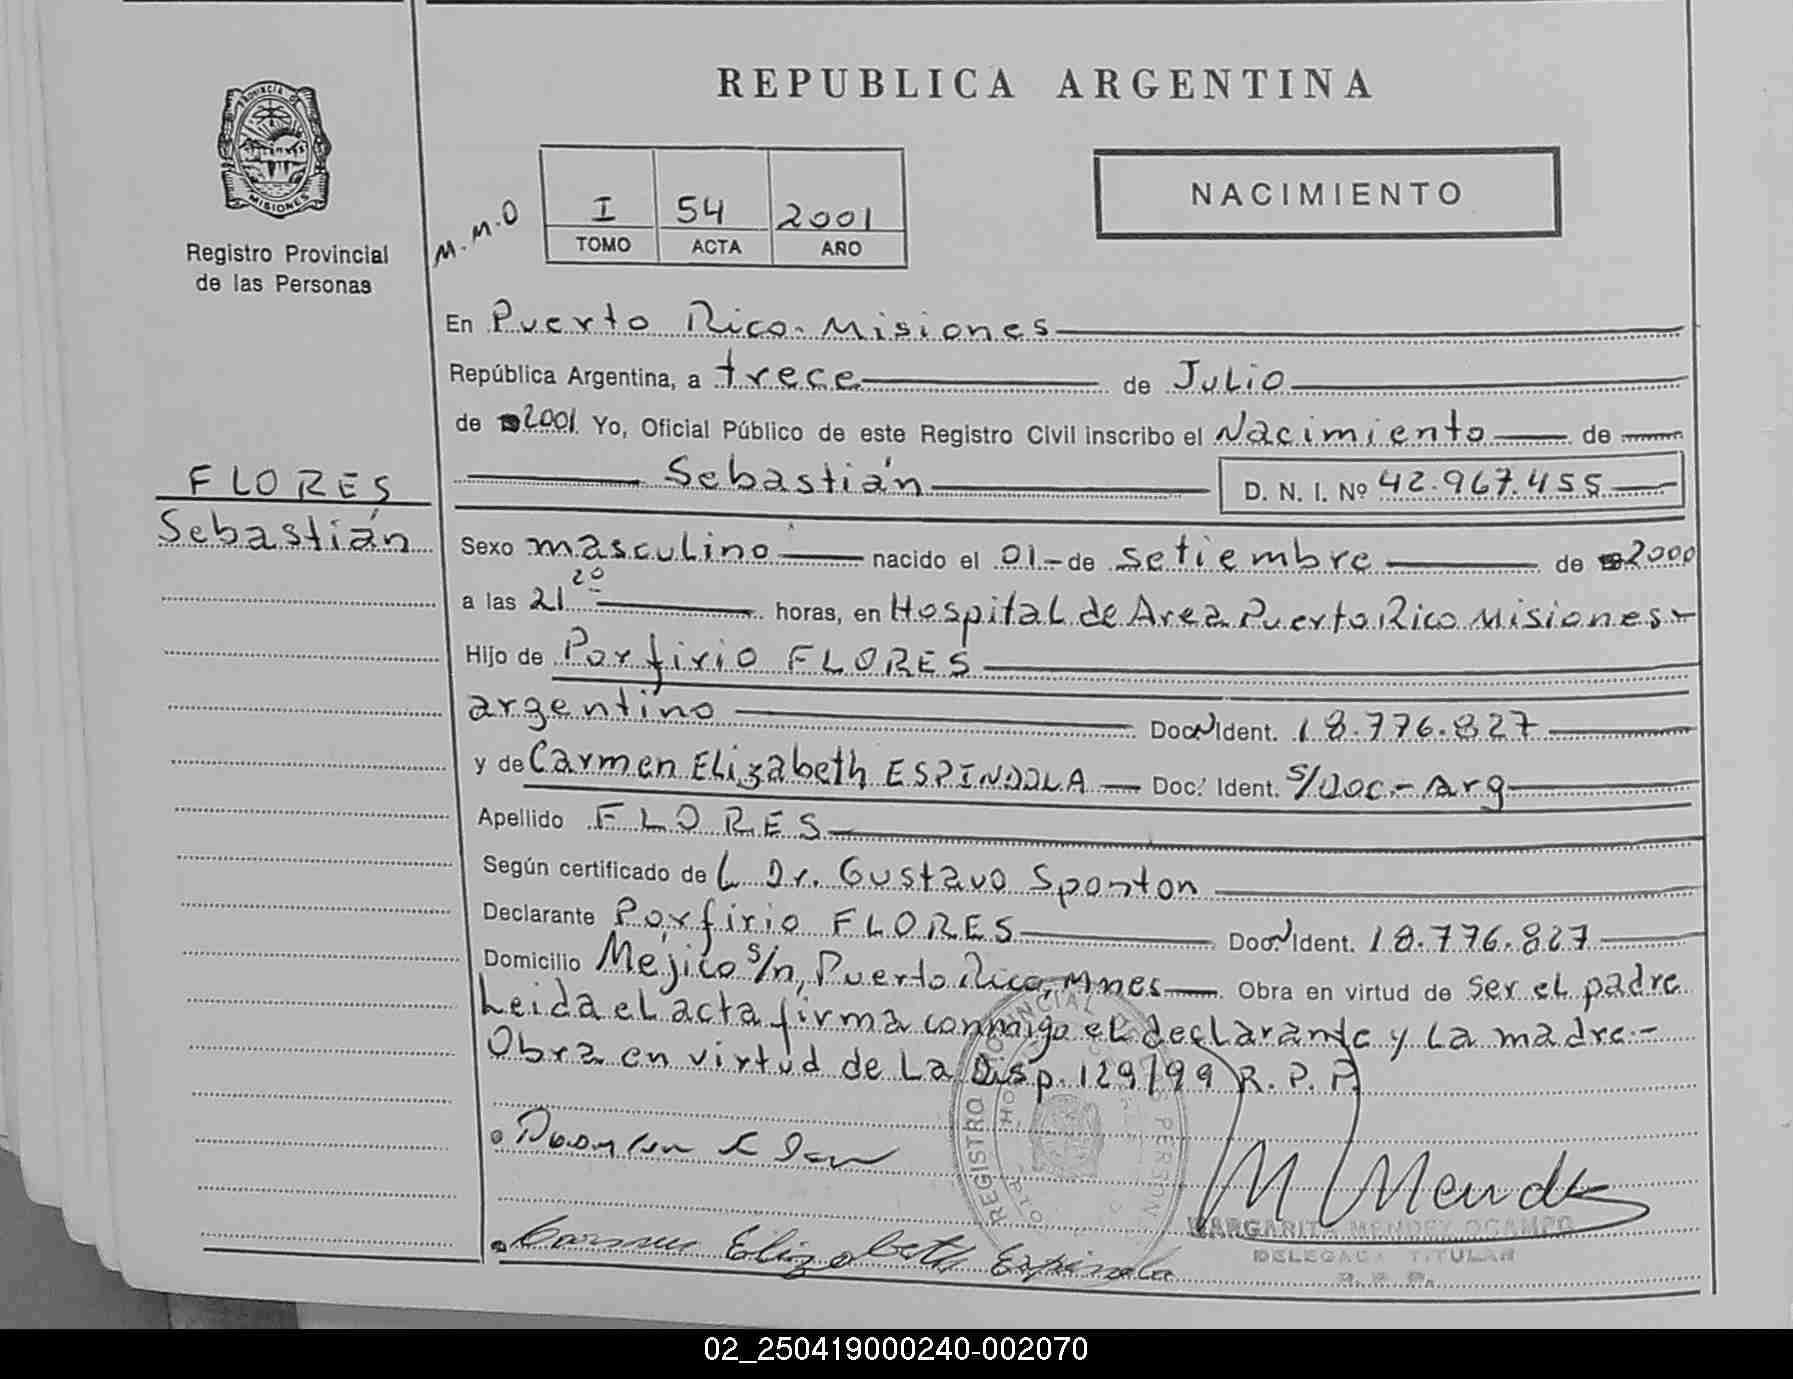 REPUBLICA ARGENTINA
PROVINCIA D
MISIONES
Registro Provincial
de las Personas
M.M.O
I 54 2001
TOMO ACTA AÑO
NACIMIENTO
En Puerto Rico - Misiones
República Argentina, a trece de Julio
de 2001. Yo, Oficial Público de este Registro Civil inscribo el Nacimiento de
Sebastián D. N. I. Nº 42.967.455
FLORES
Sebastián
Sexo masculino nacido el 01 - de Setiembre de 2000
a las 21 20 horas, en Hospital de Area Puerto Rico Misiones -
Hijo de Porfirio FLORES
argentino Doc. Ident. 18.776.827
y de Carmen Elizabeth ESPINDOLA Doc. Ident. s/doc - Arg
Apellido FLORES
Según certificado de L Dr. Gustavo Sponton
Declarante Porfirio FLORES Doc. Ident. 18.776.827
Domicilio Mejico s/n, Puerto Rico, Mnes Obra en virtud de ser el padre
Leida el acta firma conmigo el declarante y la madre -
Obra en virtud de la Disp. 129/99 R.P.P.
REGISTRO PROVINCIAL PERSON
M Mendez
Carmen Elizabeth Espindola
MARGARITA MENDEZ OCAMPO
DELEGADA TITULAR
R. P. P.
02_250419000240-002070